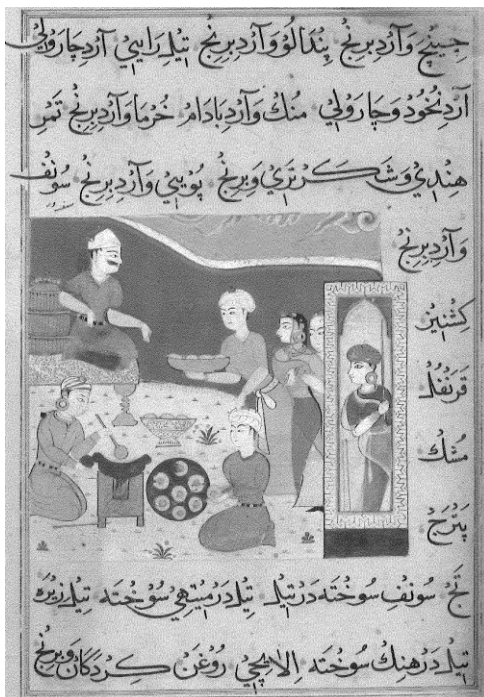 جینج وآرد برنج بندالو وآرد برنج تیل رایی آرد چارولی
آرد نخود وچارولی منک وآرد بادام خرما وآرد برنج تمر
هندی وشکرتری وبرنج پویی وآرد برنج سونف
وآرد برنج
کشنیز
قرنفل
مشک
پترج
تج سونف سوخته در تیل تیل در میتهی سوخته تیل زیره
تیل در هنک سوخته الاچی روغن کردکان وبرنج